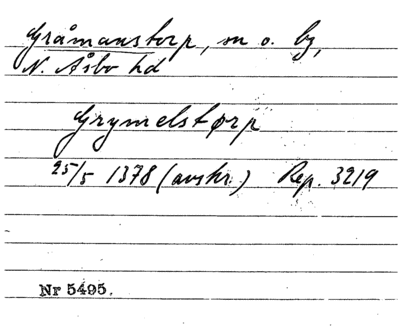 Gråmanstorp, sn o. by,
N. Åsbo hd
Grymelstørp
25/5 1378 (avskr.) Rep. 3219
Nr 5495.